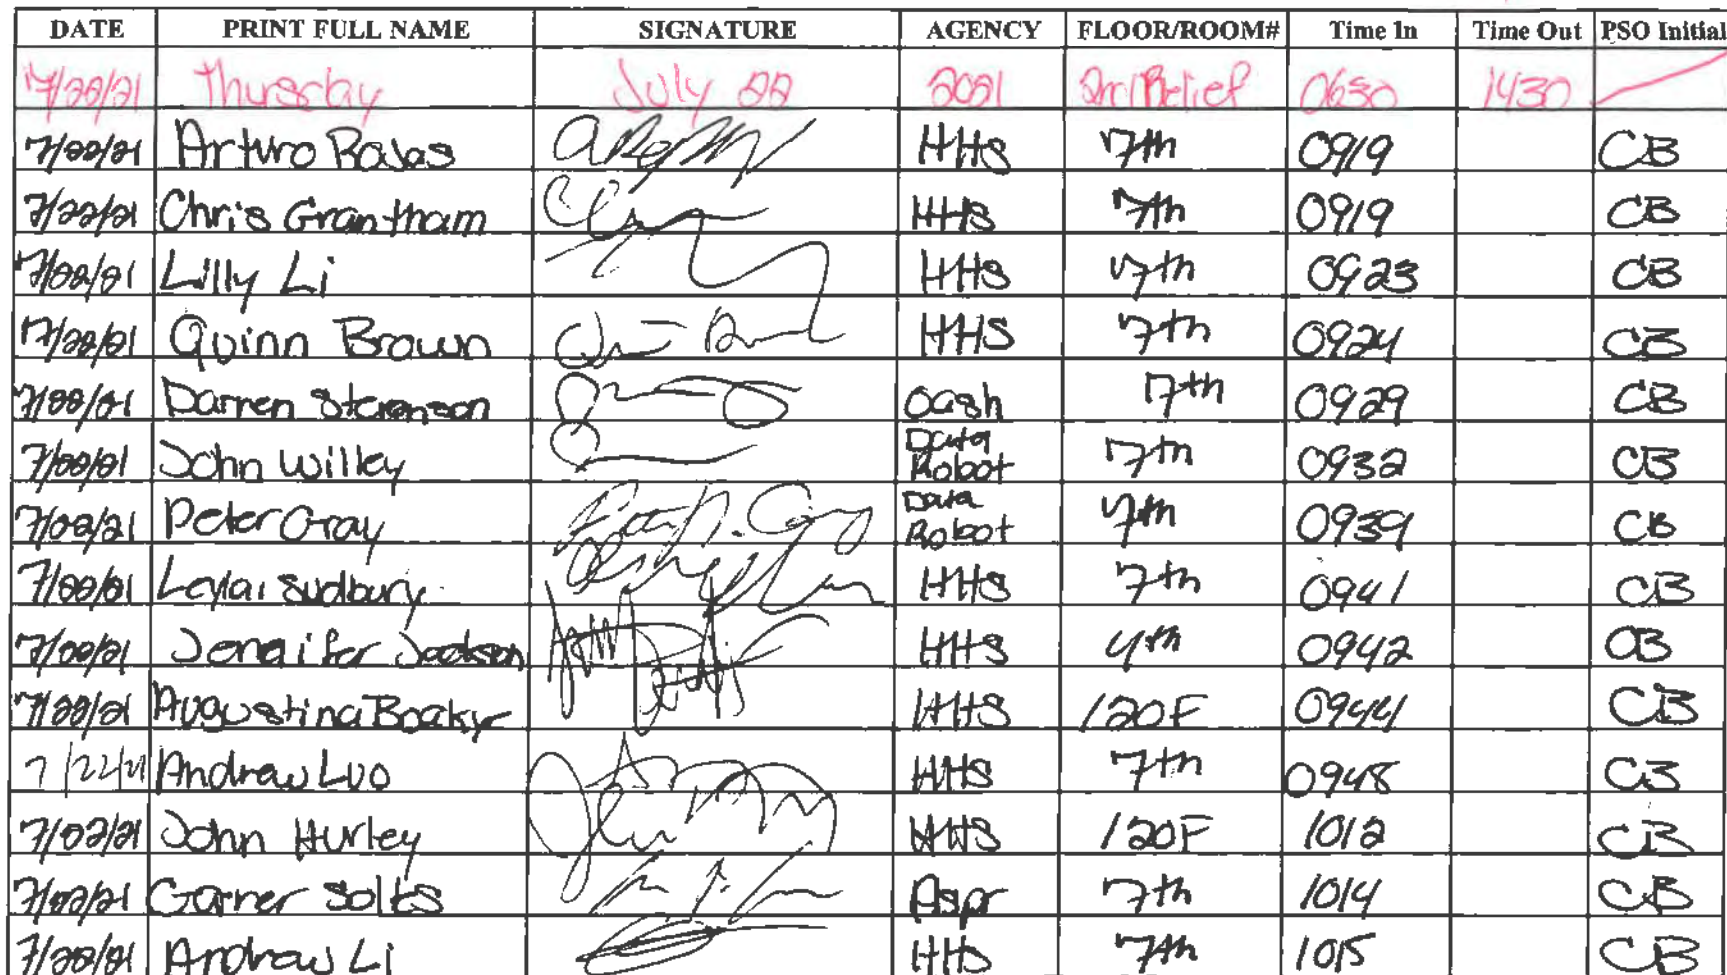 DATE PRINT FULL NAME SIGNATURE AGENCY FLOOR/ROOM# Time In Time Out PSO Initial
7/22/21 Thursday July 22 2021 Relief 0630 1430
7/22/21 Arturo HHS 7th 0919 CB
7/22/21 Chris Grantham HHS 7th 0919 CB
7/22/21 Lilly Li HHS 7th 0923 CB
7/22/21 Quinn Brown HHS 7th 0924 CB
7/22/21 Darren Stevenson Oash 7th 0929 CB
7/22/21 John Willey Data Robot 7th 0932 CB
7/22/21 Peter Gray Data Robot 7th 0939 CB
7/22/21 Sudbury HHS 7th 0941 CB
7/22/21 Jennifer Jackson HHS 4th 0942 CB
7/22/21 Augustina HHS 120F 0944 CB
7/22/21 Andrew Luo HHS 7th 0948 CB
7/22/21 John Hurley HHS 120F 1012 CB
7/22/21 Solts Aspr 7th 1014 CB
7/22/21 Andrew Li HHS 7th 1015 CB